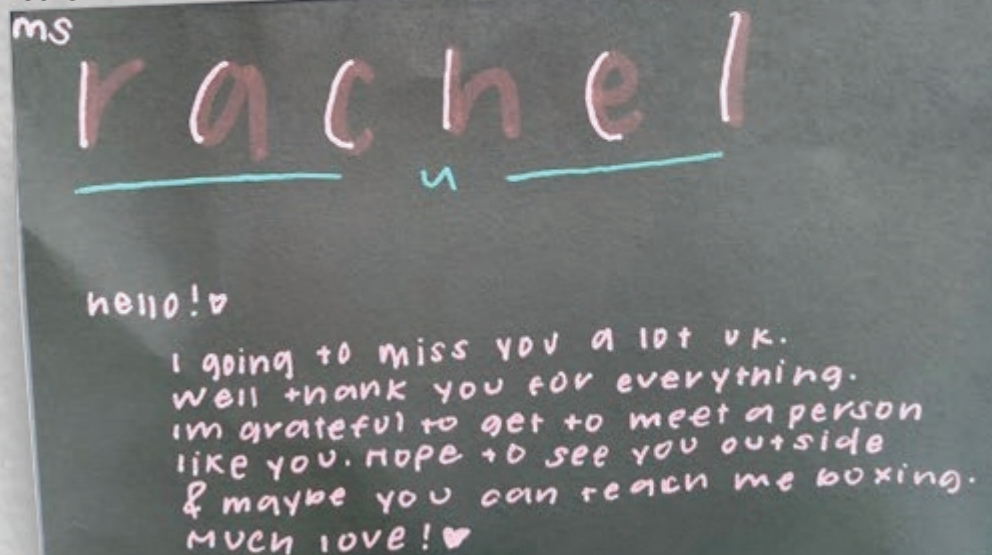 ms
rachel
hello!♡
I going to miss you a lot uk.
Well thank you for everything.
im grateful to get to meet a person
like you. Hope to see you outside
& maybe you can teach me boxing.
Much love!♥